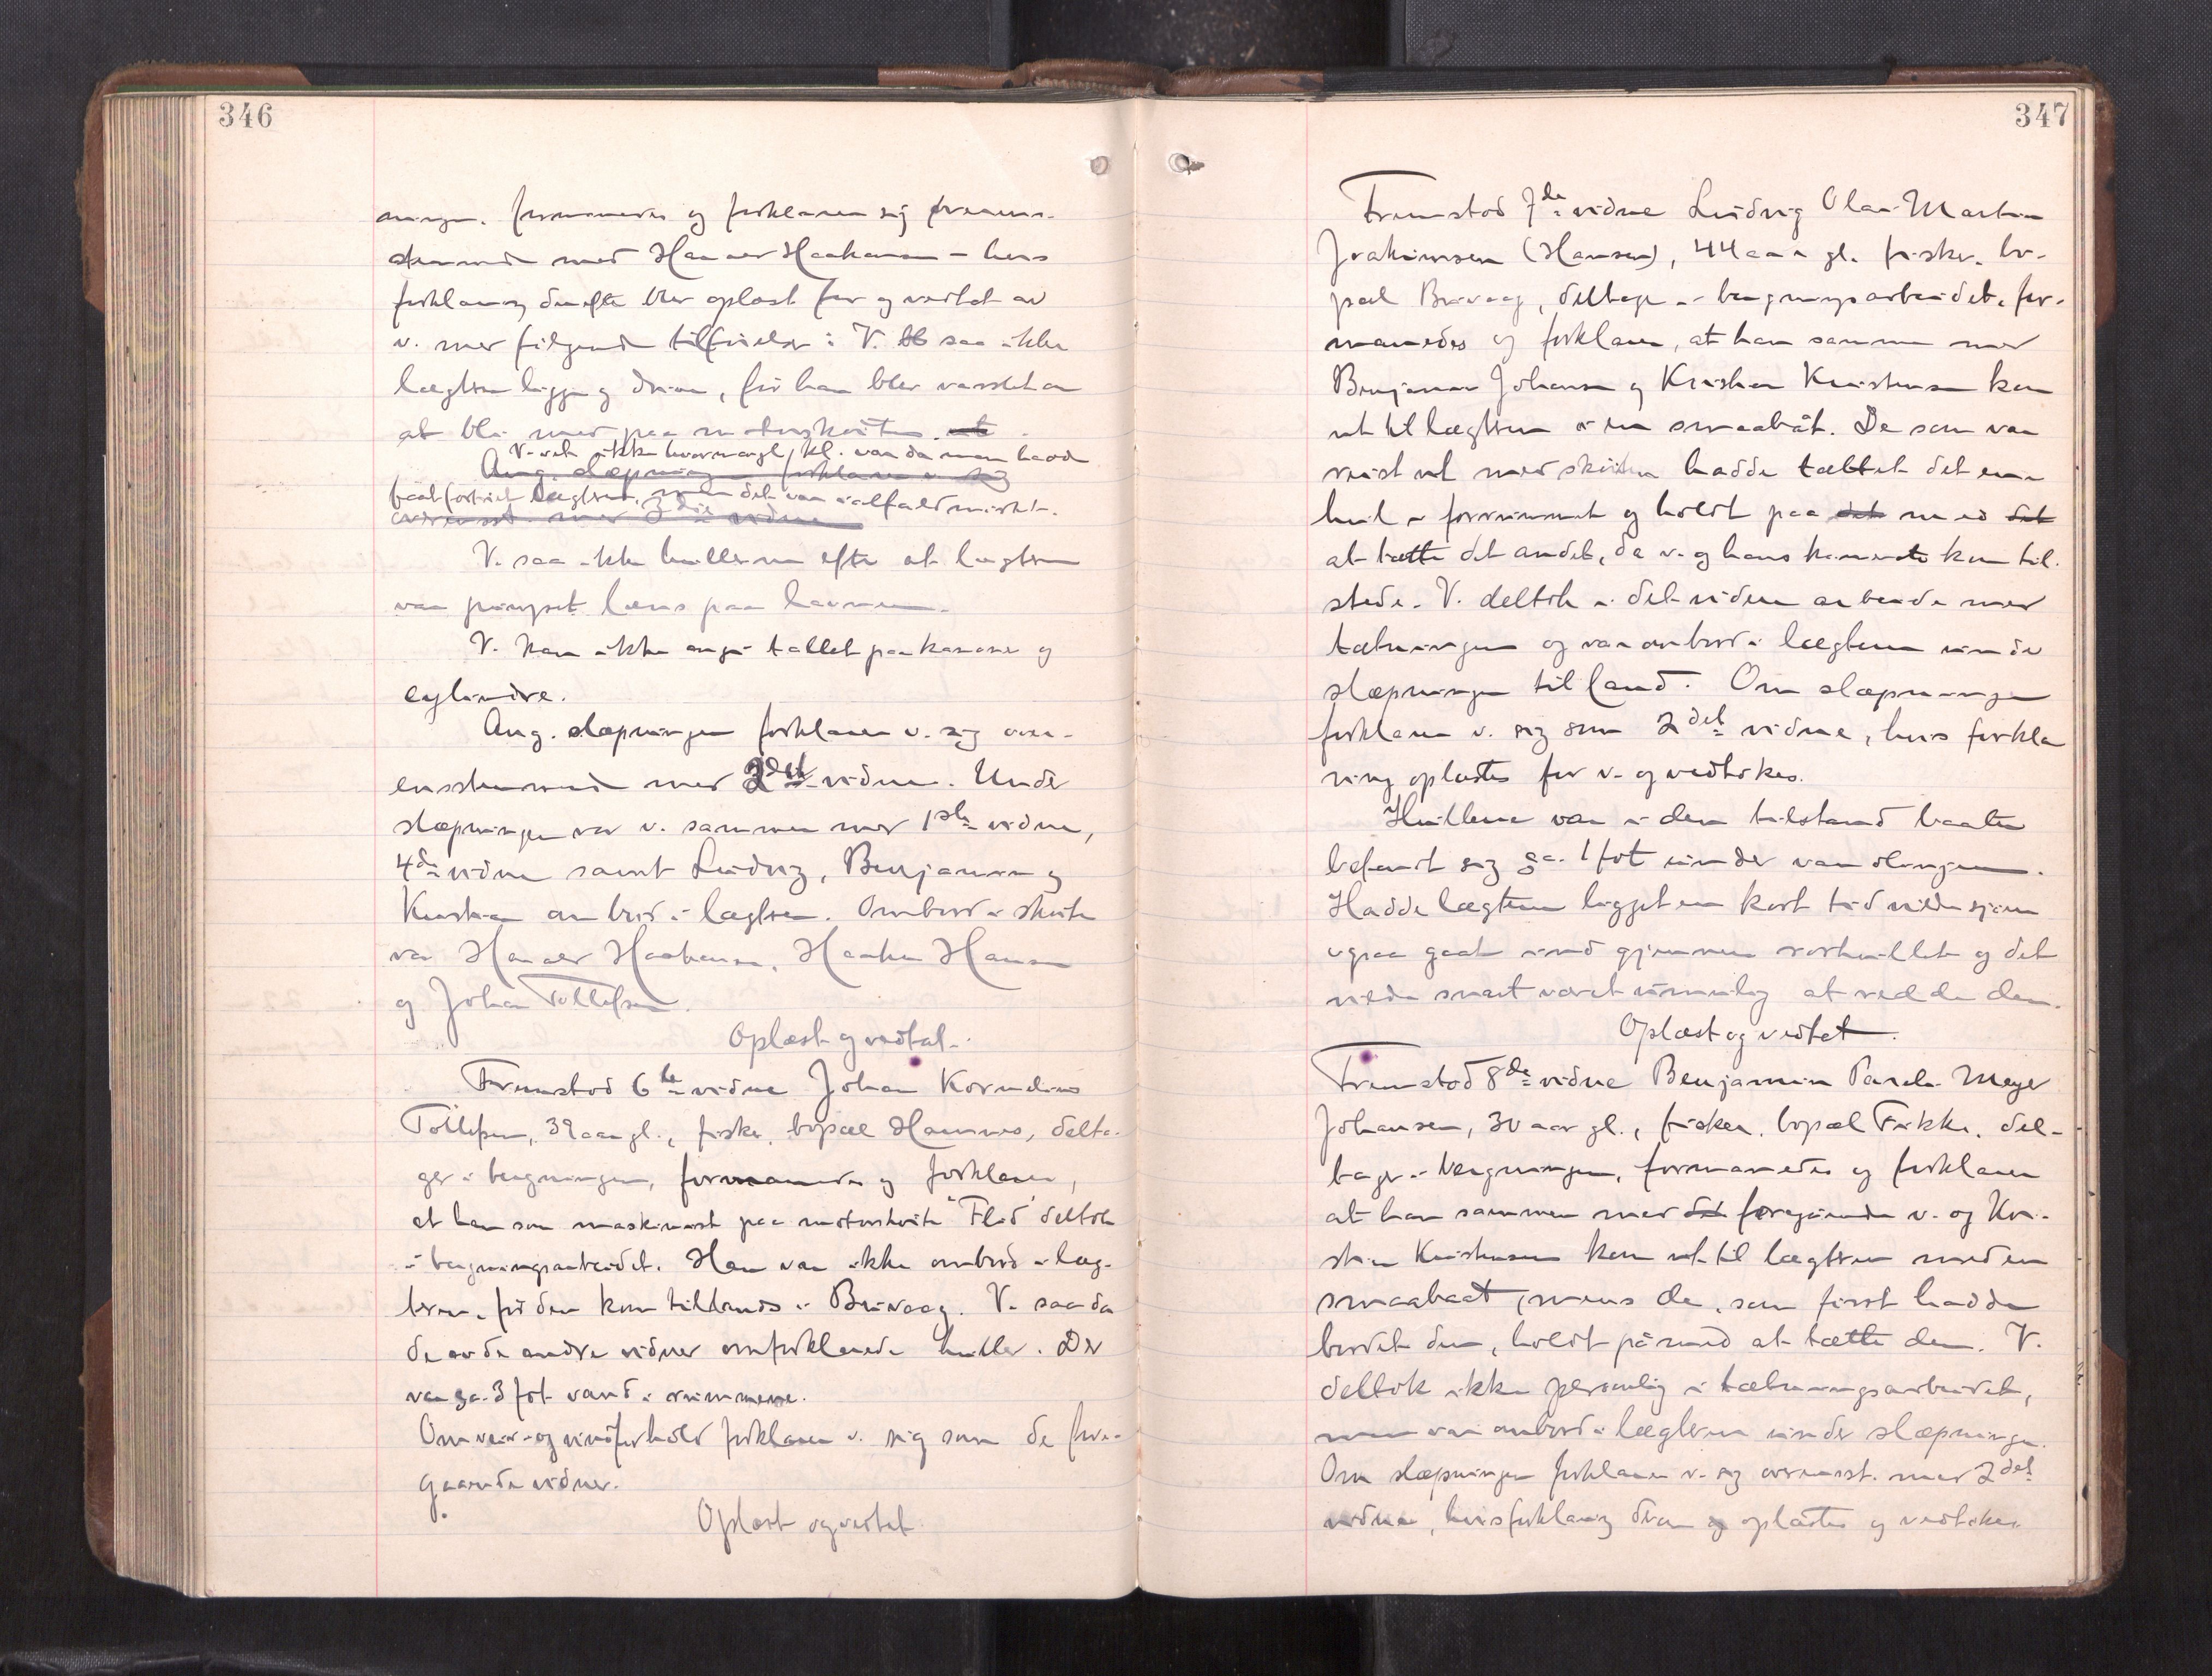 346
ningen, formanedes og forklarer sig overens-
stemmende med Hans Haakensen - hvis
forklaring derefter blev oplæst for og vedtat av
v. med følgende tilføielse: V. saa ikke
lægteren ligge og drive, før han blev varslet om
at bli med paa motorskøiten.
V. vet ikke hvormange kl. var da man havde
Ang. slæpningen forklarer v. sig
faat fortøiet lægteren, men det var ialfald mørkt.
overensst. med 3die vidne
V. saa ikke hullerne efter at lægteren
var pumpet læns paa havnen.
V. kan ikke angi tallet paa kasser og
cylindre.
Ang. slæpningen forklarer v. sig over-
ensstemmende med 2det vidne. Under
slæpningen var v. sammen med 1ste vidne,
4de vidne samt Ludvig, Benjamin og
Kristian ombord i lægteren. Ombord i skøiten
var Haakensen, Haaken Hansen
og Johan Tollefsen.
Oplæst og vedtat.
Fremstod 6te vidne Johan Kornelius
Tollefsen, 39 aar gl., fisker, bopæl Hamnes, delta-
ger i bergningen, formanedes og forklarer,
at han som maskinist paa motorskøite "Flid" deltok
i bergningsarbeidet. Han var ikke ombord i læg-
teren, før den kom tillands i Breivaag. V. saa da
de av de andre vidner omforklarede huller. Der
var ca. 3 fot vand i rummene.
Om veir- og vindforhold forklarer v. sig som de fore-
gaaende vidner.
Oplæst og vedtat.
347
Fremstod 7de vidne Ludvig Olai Martin
Joakimsen (Hansen), 44 aar gl. fisker, bo-
pæl Breivaag, deltager i bergningsarbeidet, for-
manedes og forklarer, at han sammen med
Benjamin Johansen og Kristian Kristensen kom
ut til lægteren i en smaabåt. De som var
reist ut med skøiten hadde tættet det ene
hul i forrummet og holdt paa det med det
at tætte det andet, da v. og hans kamerater kom til-
stede. V. deltok i det videre arbeide med
tætningen og var ombord i lægteren under
slæpningen til land. Om slæpningen
forklarer v. sig som 2det vidne, hvis forkla
ring oplæstes for v. og vedtokes.
Hullene var i den tilstand baaten
befandt sig ca. 1 fot under vandlinjen.
Hadde lægteren ligget en kort tid vilde sjøen
ogsaa gaat ind gjennem rorhullet og det
vilde snart været umulig at redde den.
Oplæst og vedtat.
Fremstod 8de vidne Benjamin Meyer
Johansen, 30 aar gl., fisker, bopæl, del-
tager i bergningen, formanedes og forklarer
at han sammen med det foregaaende v. og Kri-
stian Kristensen kom ut til lægteren med en
smaabaat, mens de, som først hadde
bordet den, holdt på med at tætte den. V.
deltok ikke personlig i tætningsarbeidet,
men var ombord i lægteren under slæpningen.
Om slæpningen forklarer v. sig overensst. med 2det
vidne, hvis forklaring oplæstes og vedtokes